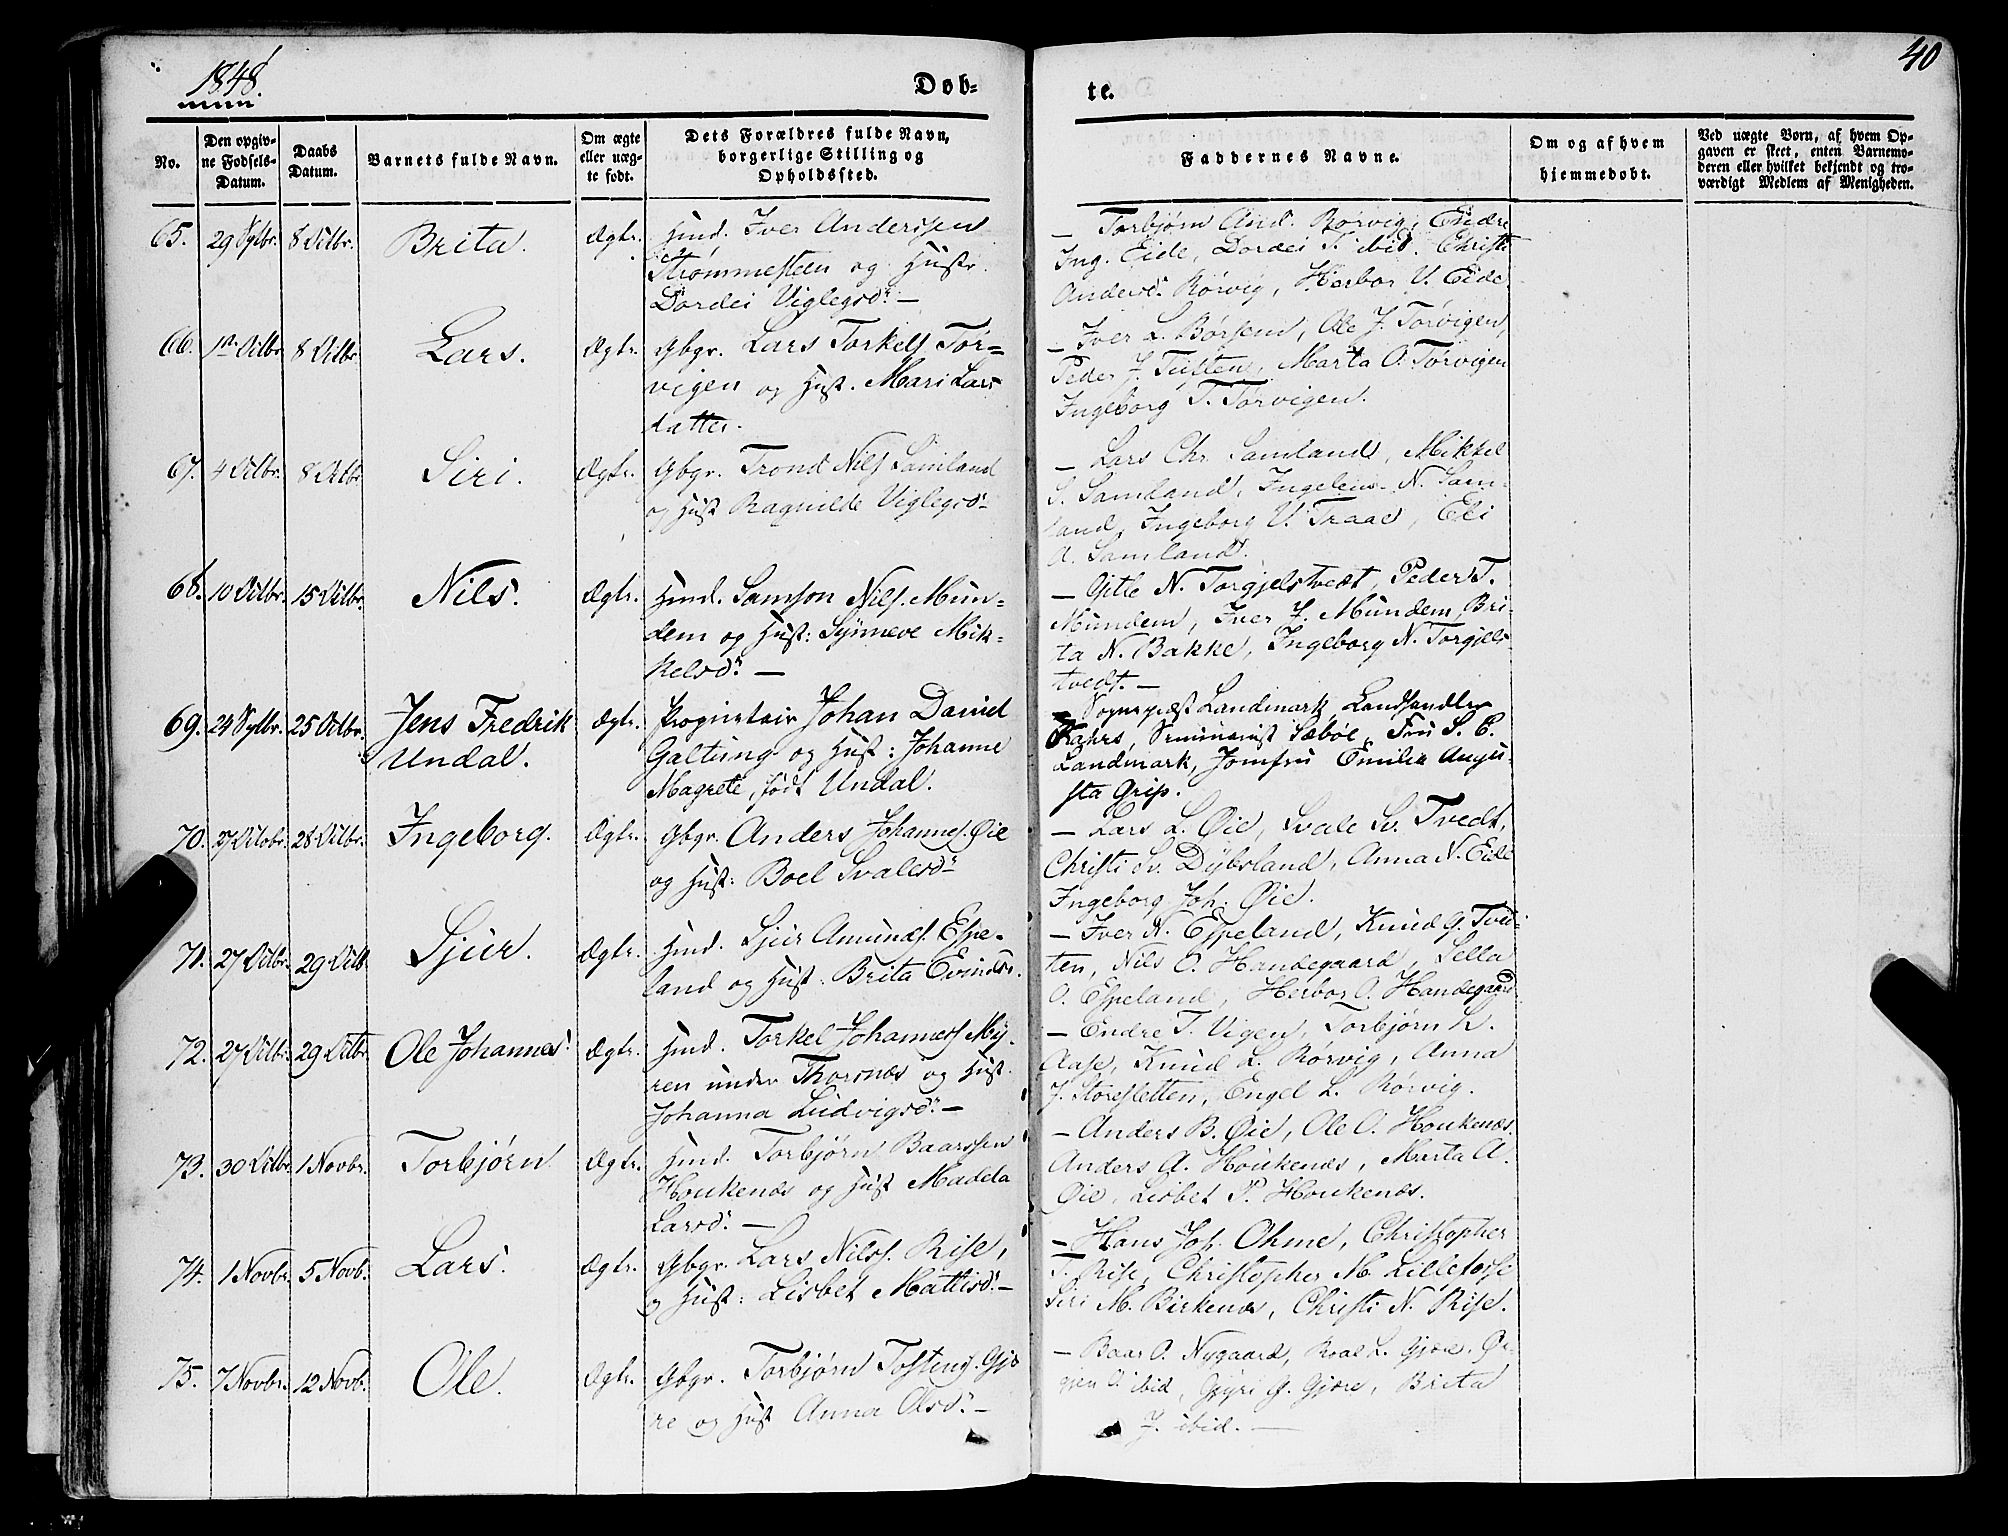 1848.
Døb-
te.
40
No.
Den opgiv-
ne Fødsels-
Datum.
Daabs
Datum.
Barnets fulde Navn.
Om ægte
eller uæg-
te født.
Dets Forældres fulde Navn,
borgerlige Stilling og
Opholdssted.
Faddernes Navne.
Om og af hvem
hjemmedøbt.
Ved uægte Børn, af hvem Op-
gaven er skeet, enten Barnemo-
deren eller hvilket bekjendt og tro-
værdigt Medlem af Menigheden.
65. 29 Septbr. 8 Octbr. Brita. Ægte. Huusmd. Iver Anderssen
Strømmesteen og Hustr.
Dordei Viglegsdr. —
— Torbjørn And. Rørvig, Endre
Ing. Eide, Dordei T. ibid. Christi
Andersdr. Rørvig, Herbor V. Eide
66. 1ste Octbr. 8 Octbr. Lars. Ægte. Gbgr. Lars Torkels. Tør-
vigen og Hust. Mari Lars
datter.
— Iver L. Børsem, Ole J. Tørvigen,
Peder J. Tuften, Marta O. Tørvigen
Ingeborg T. Tørvigen.
67. 4 Octbr. 8 Octbr Siri. Ægte. Gbgr. Trond Nils. Samland
og Hust Ragnilde Viglegsdr. —
— Lars Chr. Samland, Mikkel
S. Samland, Ingeleiv N. Sam-
land, Ingeborg V. Traae, Eli
A. Samland.
68. 10 Octbr. 15 Octbr. Nils. Ægte. Huusmd. Samson Nils. Mun-
dem og Hust: Synneve Mik-
kelsdr. —
— Gitle N. Torgjelstvedt, Peder T.
Mundem, Iver J. Mundem, Bri-
ta N. Bakke, Ingeborg N. Torgjels-
tvedt. —
69. 24 Septbr. 25 Octbr. Jens Fredrik
Undal. Ægte. Proprietair Johan Daniel
Galtung og Hust: Johanne
Magrete, født Undal.
— Sognepræst Landmark, Landhandler
Fahrs, Seminarist Sæbøe, Fru S. C.
Landmark, Jomfru Emilie Augu-
sta Grip.
70. 27 Octobr. 28 Octbr. Ingeborg. Ægte. Gbgr. Anders Johannes. Øie
og Hust: Boel Svalesdr. —
— Lars L. Øie, Svale Sv. Tvedt,
Christi Sv. Dybsland, Anna N. Eide
Ingeborg Joh. Øie.
71. 27 Octbr. 29 Octb Sjur. Ægte. Huusmd. Sjur Amunds. Espe-
land og Hust: Brita Evindsdr.
— Iver K. Espeland, Knud G. Tved-
ten, Nils O. Handegaard, Sella
O. Espeland, Herbor O. Handegaard.
72. 27 Octbr. 29 Octbr Ole Johannes. Ægte. Huusmd. Torkel Johanness. My-
ren under Thorsnæs og Hust.
Johanna Ludvigsdr. —
— Endre T. Vigen, Torbjørn K.
Aase, Knud L. Rørvig, Anna
J. Storesletten, Engel L. Rørvig.
73. 30 Octbr. 1 Novbr. Torbjørn Ægte. Huusmd. Torbjørn Baarssen
Houkenæs og Hust Madela
Larsdr. —
— Anders B. Øie, Ole O. Houkenæs
Anders A. Houkenæs, Marta A.
Øie, Lisbet P. Houkenæs.
74. 1 Novbr. 5 Novb. Lars. Ægte. Gbgr. Lars Nilss. Rise,
og Hust: Lisbet Mattisdr. —
— Hans Joh. Ohme, Christopher
T. Rise, Christopher M. Lilletorse
Siri M. Birkenæs, Christi N. Rise.
75. 7 Novbr. 12 Novb. Ole. Ægte. Gbgr. Torbjørn Tostens. Gjæ
re og Hust Anna Olsdr. —
— Baar O. Nygaard, Roal L. Gjære, Ør-
gjen O. ibid, Gyri G. Gjære, Brita
J. ibid. —